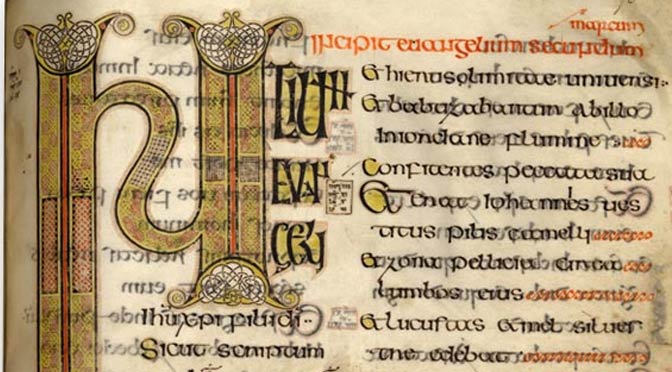 marcum
incipit euangelium secundum
INI
TIUM
EUAN
GELII
ihu xpi fili di
Sicut scriptum
Et hierusolimitae uniuersi
Et babtizabantur ab illo
In iordane flumine
Confitentes peccata sua
Et erat iohannes ues
titus pilis cameli
et zona pellicia circa
lumbos eius
Et lucustas et mel siluer
tre edebat